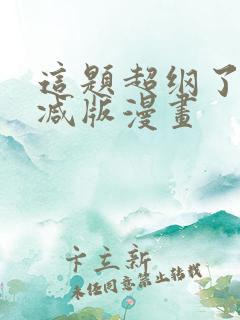 這題超纲了
减版漫畫
卡立新
未经同意禁止转载